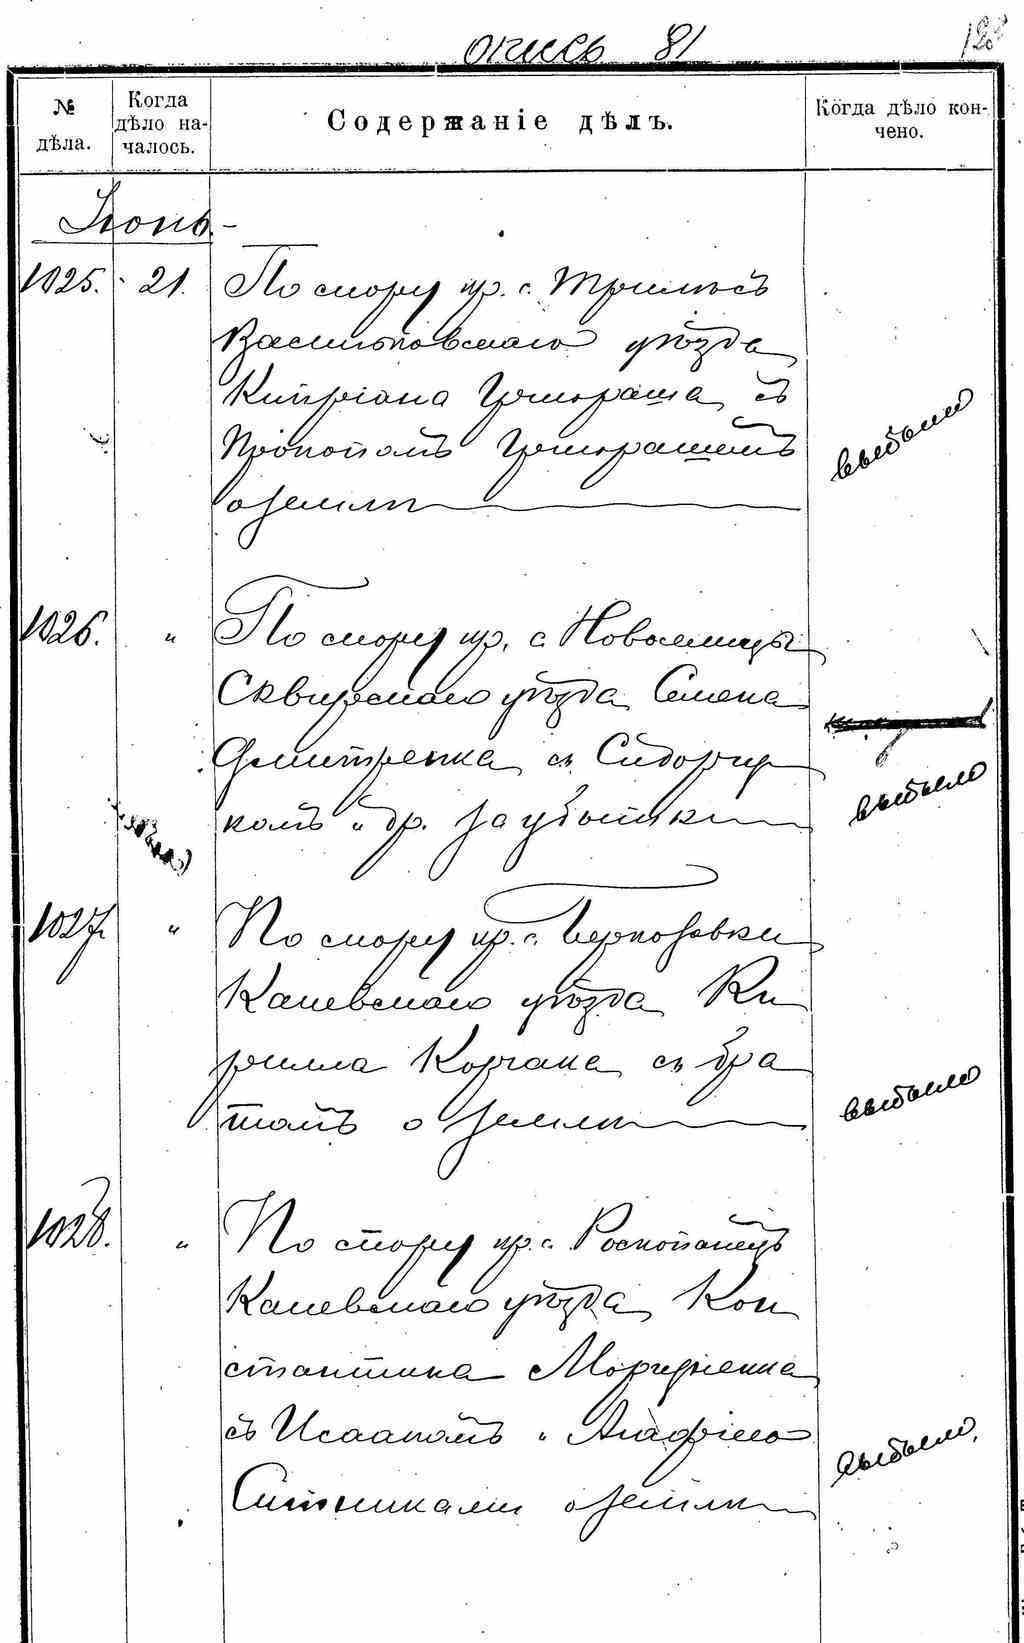 опись 81
128
№ дѣла.
Когда дѣло началось.
Содержаніе дѣлъ.
Когда дѣло кончено.
Іюнь.
1025. 21. По спору кр. с. Трилѣсъ
Васильковскаго уѣзда
Кипріана Григораша съ
Прокопомъ Григорашемъ
о землѣ
выбыло
1026. " По спору кр. с. Новоселицы
Сквирскаго уѣзда Семена
Дмитренка съ Сидорчу
комъ и др. за убытки
выбыло
1027. " По спору кр. с.
Каневскаго уѣзда Ки
рилла Корчака съ бра
томъ о землѣ
выбыло
1028. " По спору кр. с. Роскопанецъ
Каневскаго уѣзда Кон
стантина
съ Исаакомъ и Агафіею
Ситниками о землѣ
выбыло.